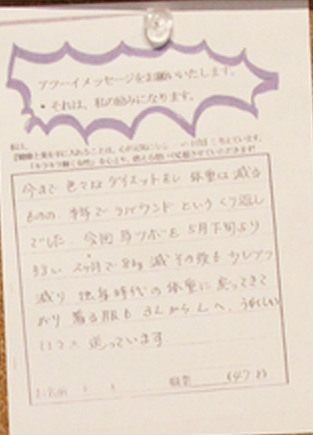 アツーイメッセージをお願いいたします。
・それは、私の励みになります。
今まで 色々な ダイエットをし 体重は減る
ものの 半年で リバウンド という くり返し
でした。今回 耳ツボを 5月下旬より
2ヶ月で 8kg 減 その後も 少しづつ
減り 独身時代の 体重に 戻ってきて
おり 着る服も 3Lから Lへ、うれしい
日々を 送っています
職業 (47才)